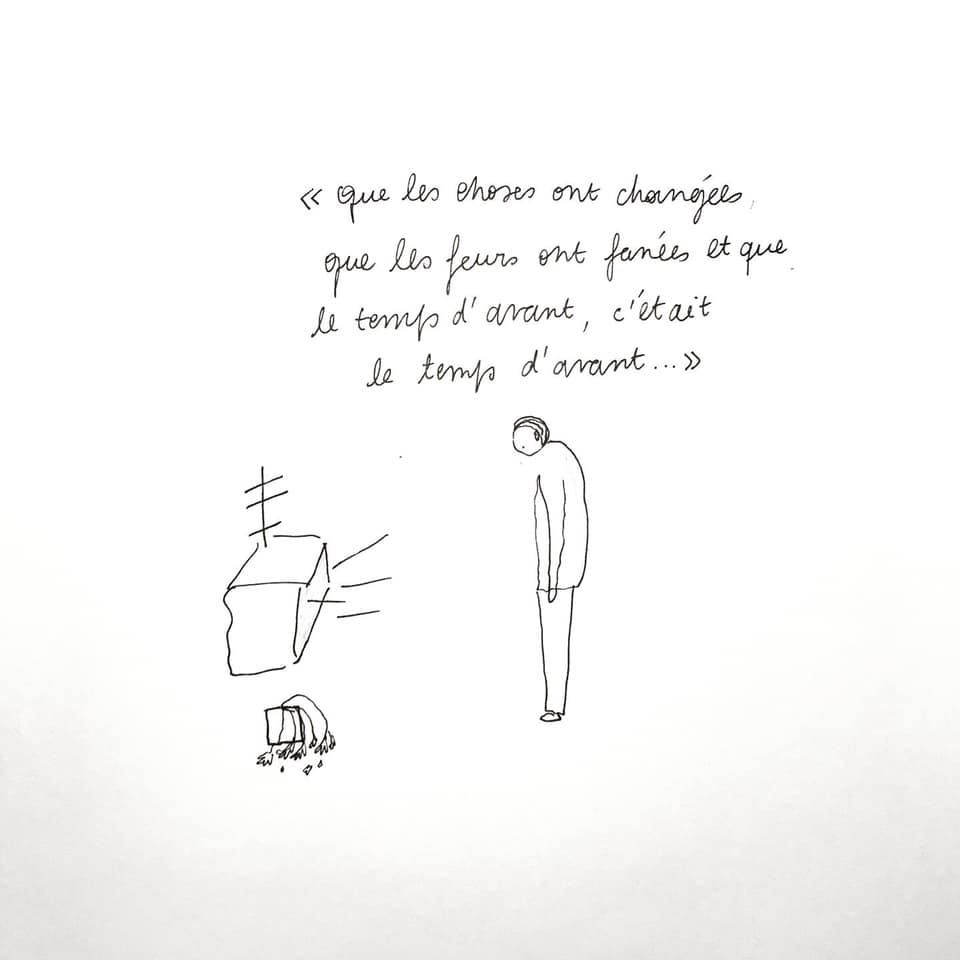 « que les choses ont changées,
que les feurs ont fanées et que
le temps d'avant, c'était
le temps d'avant... »